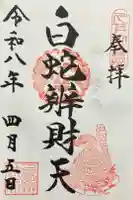 奉拝
白蛇辨財天
令和八年
四月五日